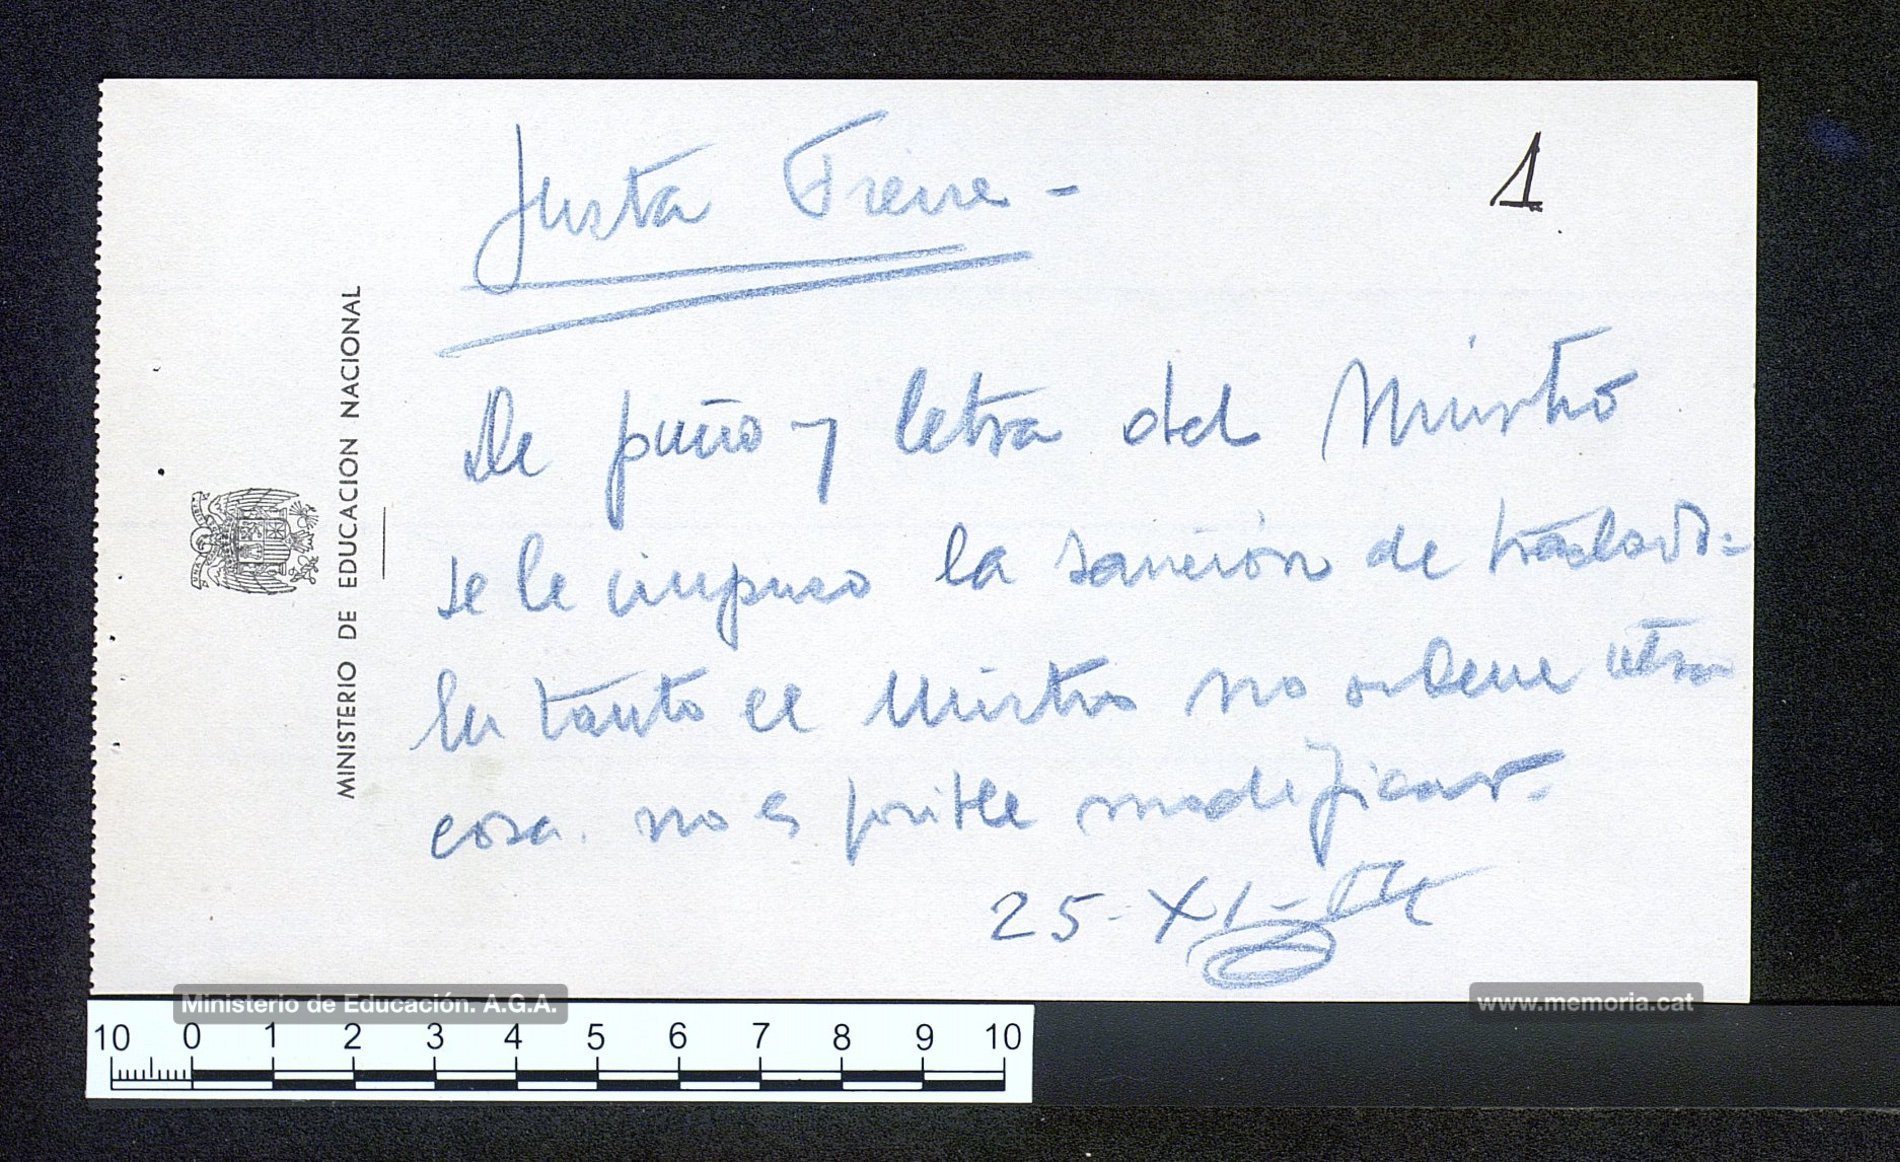 Justa Freire -
1
De puño y letra del Ministro
se le impuso la sanción de traslado.
En tanto el Ministro no ordene otra
cosa. no es posible modificar.
25-XI-
MINISTERIO DE EDUCACION NACIONAL
Ministerio de Educación. A.G.A.
www.memoria.cat
10 0 1 2 3 4 5 6 7 8 9 10